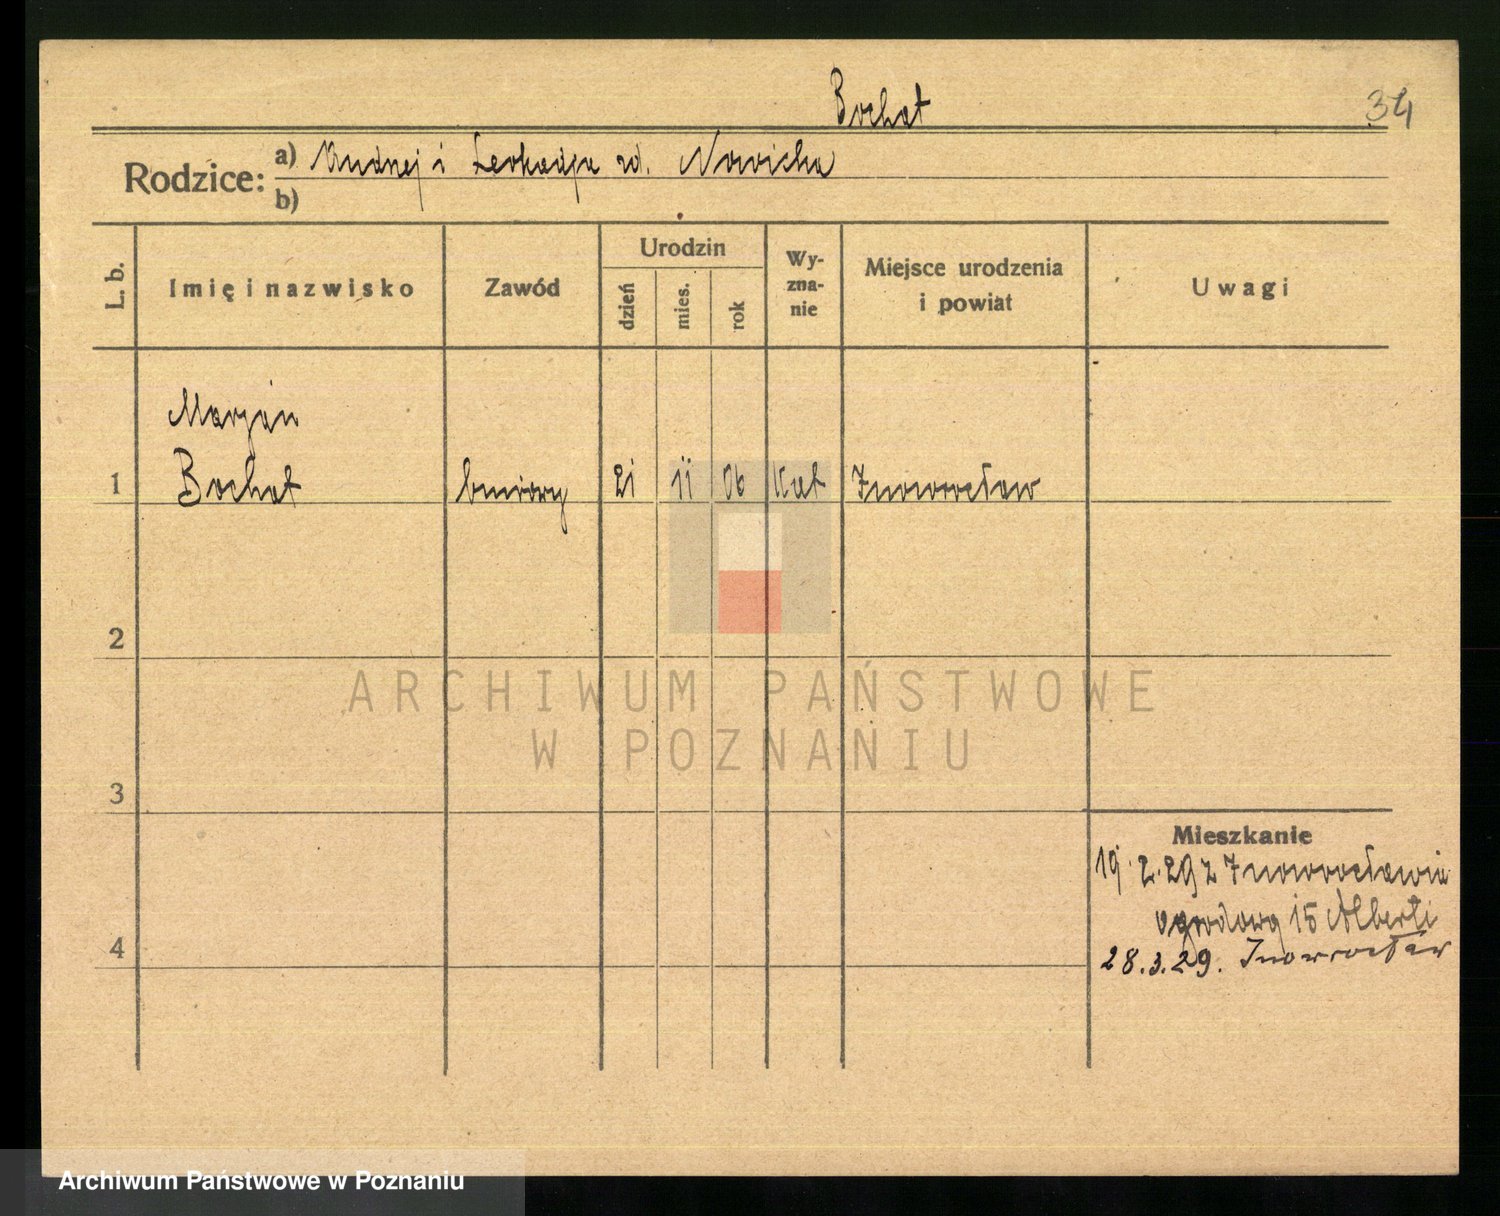 Bochat
34
Rodzice: a) Andrzej i Leokadja rd. Nowicka
b)
L. b. Imię i nazwisko Zawód Urodzin dzień mies. rok Wy-zna-nie Miejsce urodzenia i powiat Uwagi
Marjan
1 Bochat biurowy 21 11 06 Kat Inowrocław
2
ARCHIWUM PAŃSTWOWE
W POZNANIU
3
Mieszkanie
19.2.29 z Inowrocławia
Ogrodowa 15 Alberti
4 28.3.29. Inowrocław
Archiwum Państwowe w Poznaniu